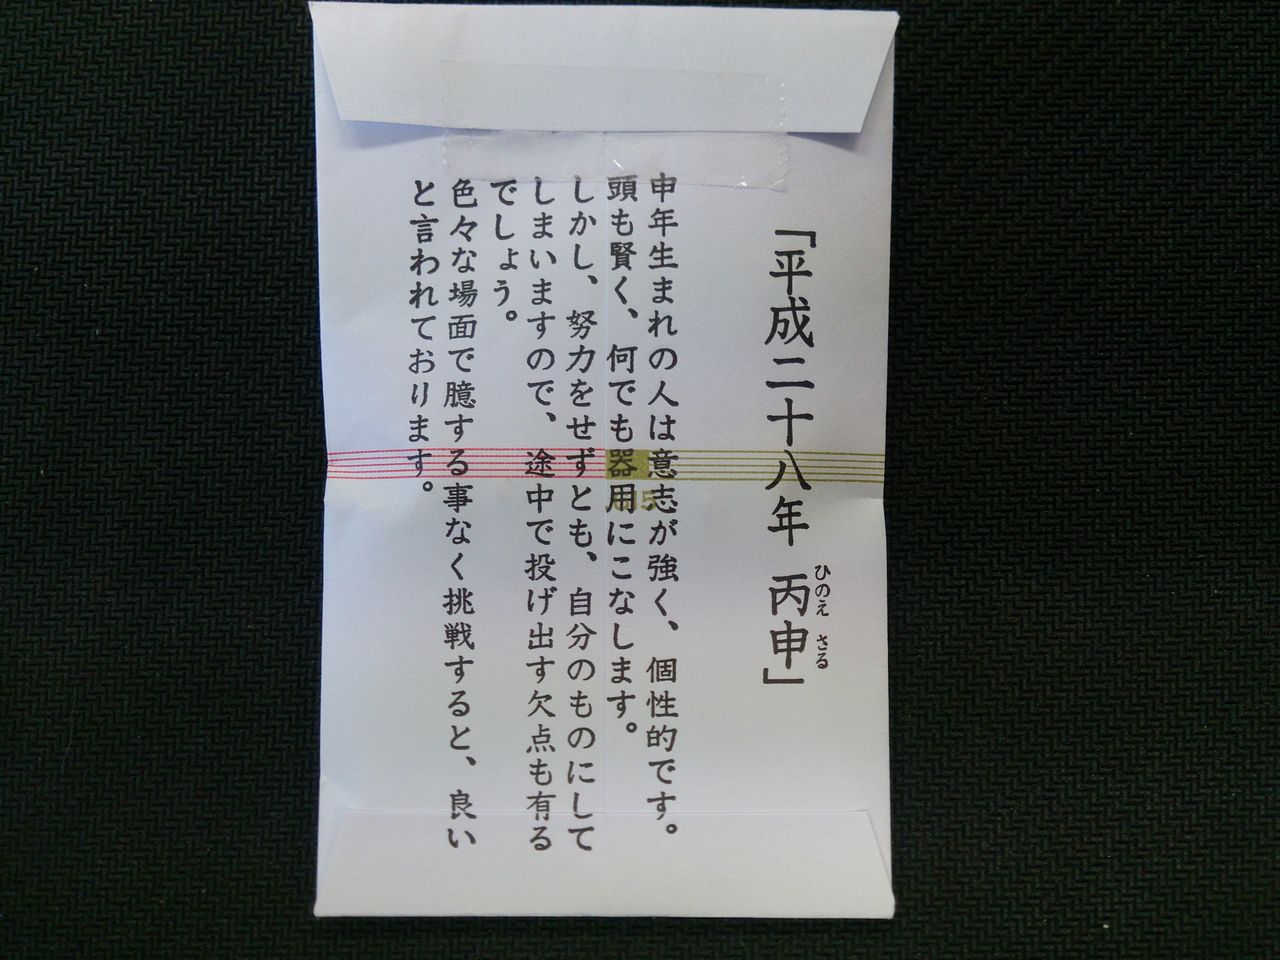 「平成二十八年 丙申」
ひのえ さる
申年生まれの人は意志が強く、個性的です。
頭も賢く、何でも器用にこなします。
しかし、努力をせずとも、自分のものにして
しまいますので、途中で投げ出す欠点も有る
でしょう。
色々な場面で臆する事なく挑戦すると、良い
と言われております。